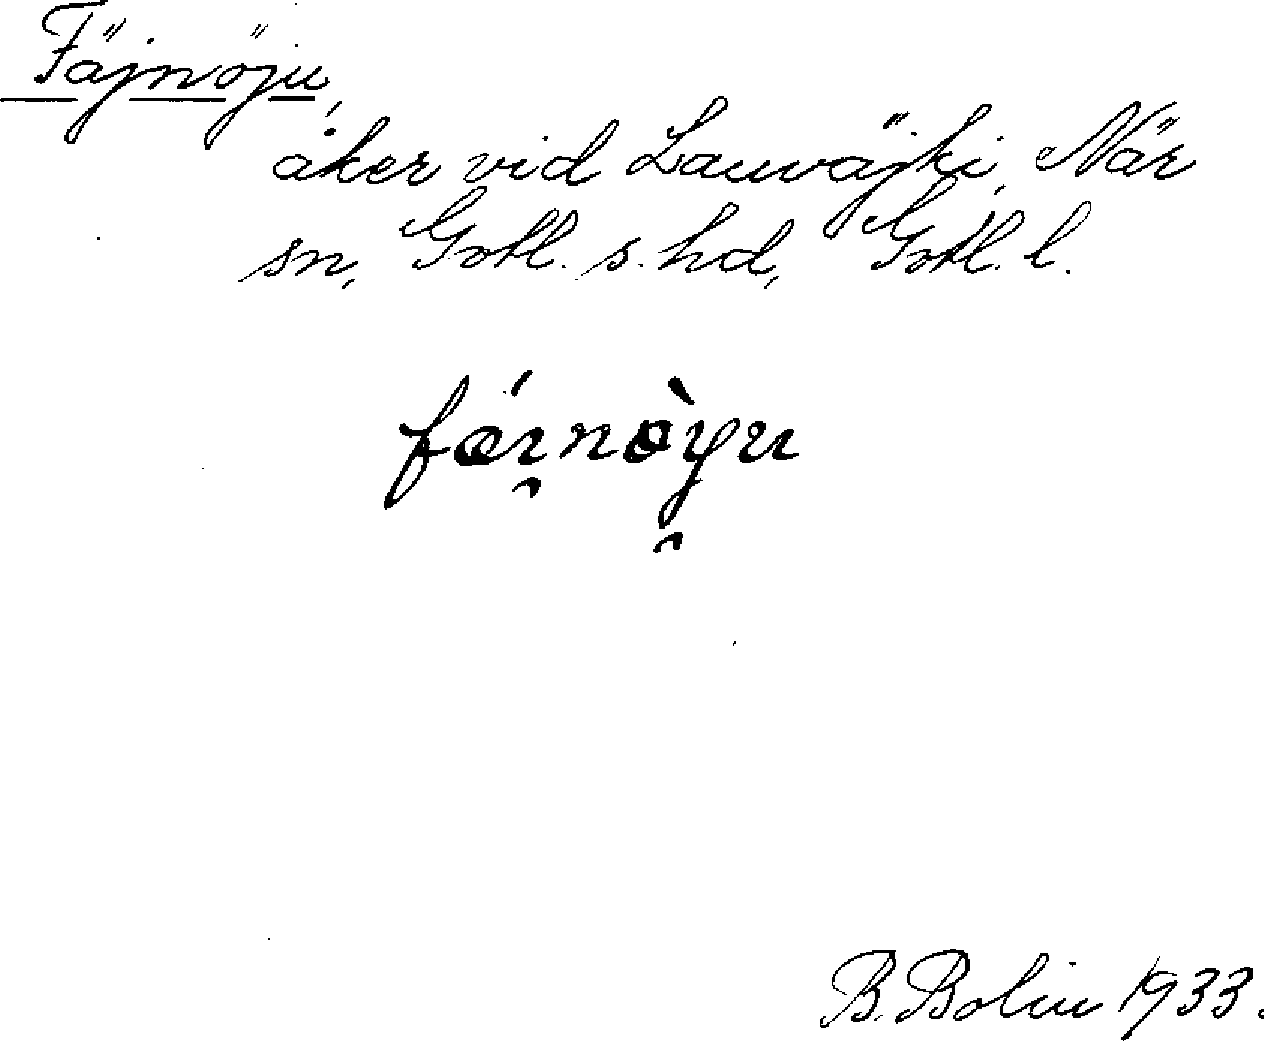 Fäjnöju,
åker vid Lauwäjki, När
sn, Gotl. s. hd, Gotl. l.
fǽi̯nòy̯u
B. Bolin 1933.